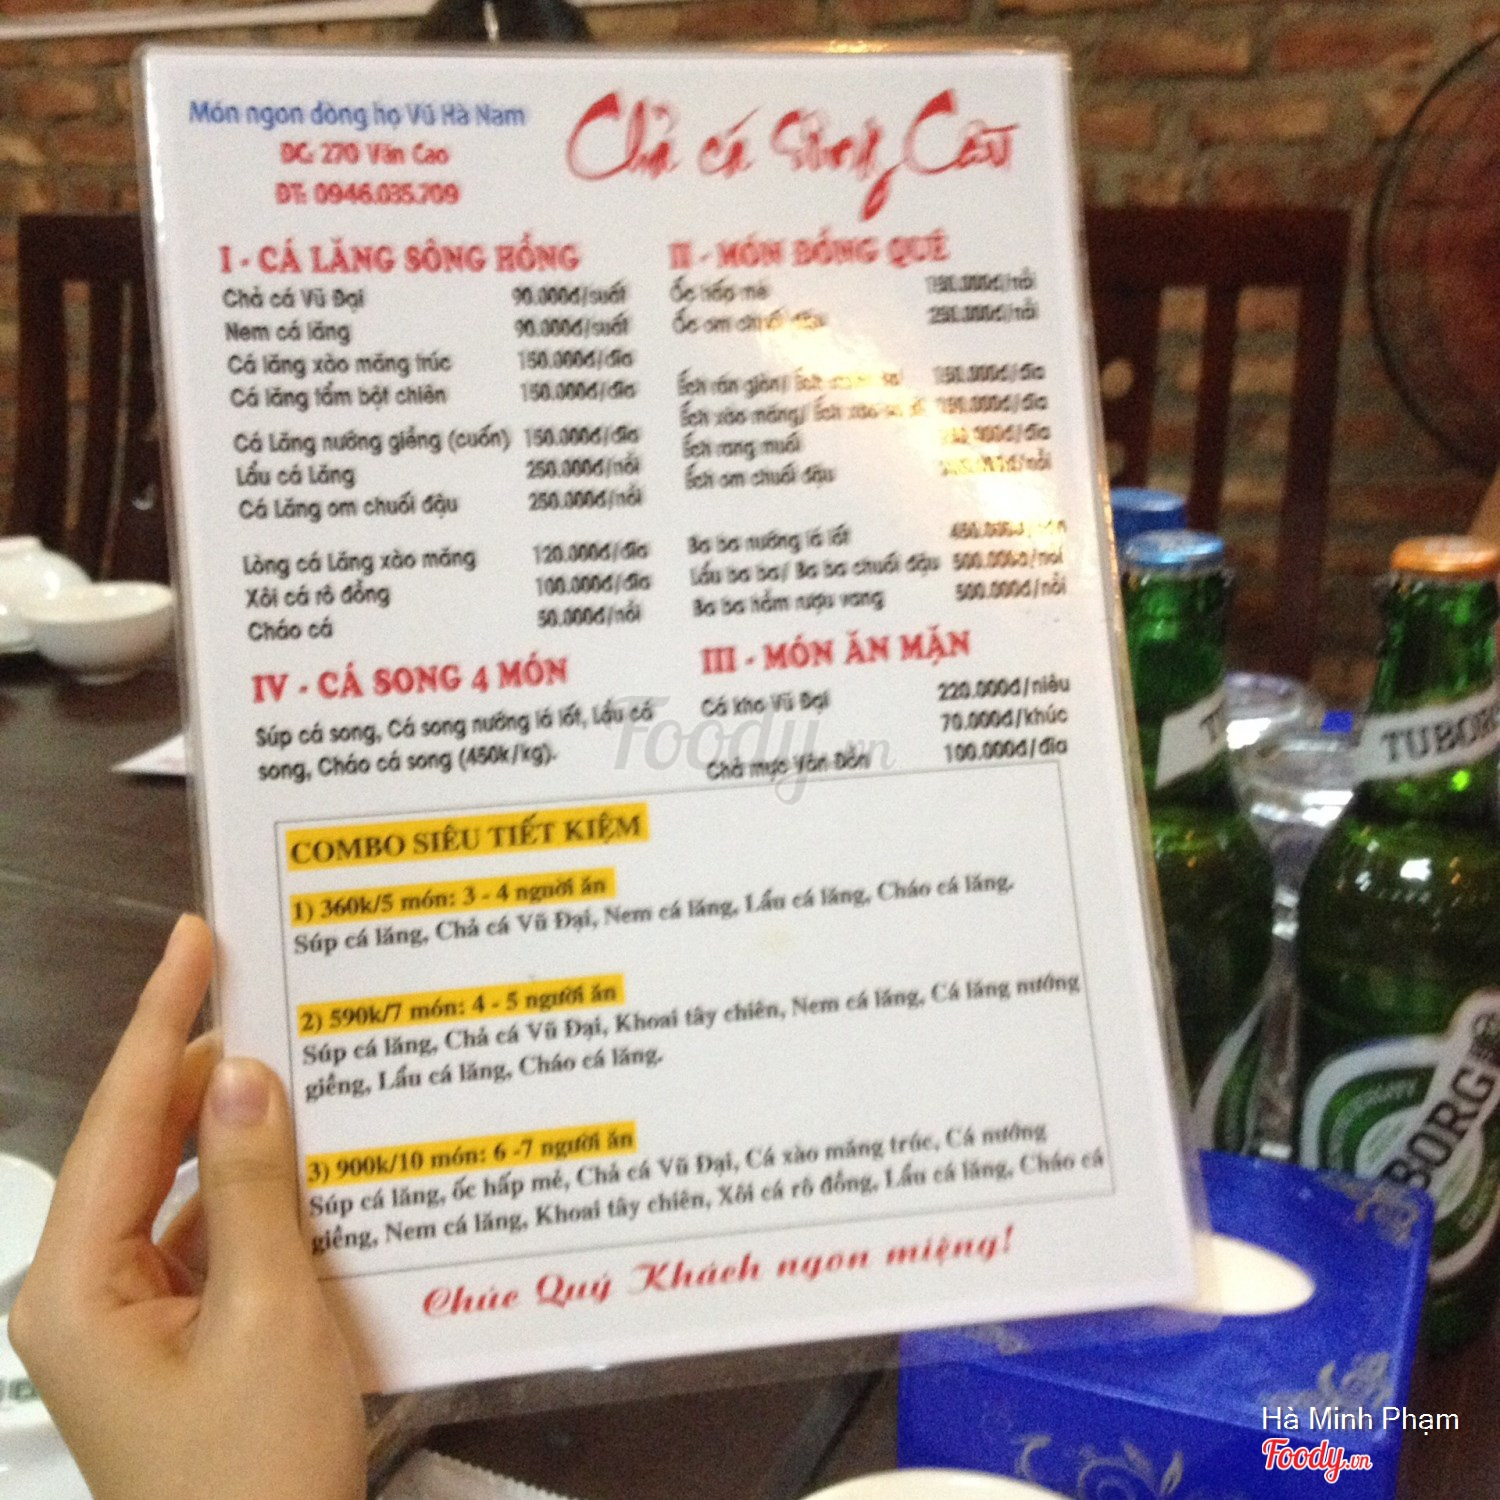 Món ngon dòng họ Vũ Hà Nam
ĐC: 270 Văn Cao
ĐT: 0946.035.709
Chả cá Sông Cầu
I - CÁ LĂNG SÔNG HỒNG
Chả cá Vũ Đại 90.000đ/suất
Nem cá lăng 90.000đ/suất
Cá lăng xào măng trúc 150.000đ/đĩa
Cá lăng tẩm bột chiên 150.000đ/đĩa
Cá Lăng nướng giềng (cuốn) 150.000đ/đĩa
Lẩu cá Lăng 250.000đ/nồi
Cá Lăng om chuối đậu 250.000đ/nồi
Lòng cá Lăng xào măng 120.000đ/đĩa
Xôi cá rô đồng 100.000đ/đĩa
Cháo cá 50.000đ/nồi
II - MÓN ĐỒNG QUÊ
Ốc hấp mẻ
Ốc om chuối đậu 250.000đ/nồi
Ếch rán giòn/ Ếch 150.000đ/đĩa
Ếch xào măng/ Ếch xào
Ếch rang muối
Ếch om chuối đậu
Ba ba nướng lá lốt
Lẩu ba ba/ Ba ba chuối đậu 500.000đ/nồi
Ba ba hầm rượu vang 500.000đ/nồi
III - MÓN ĂN MẶN
Cá kho Vũ Đại 220.000đ/niêu
70.000đ/khúc
Chả mực Vân Đồn 100.000đ/đĩa
IV - CÁ SONG 4 MÓN
Súp cá song, Cá song nướng lá lốt, Lẩu cá
song, Cháo cá song (450k/kg).
COMBO SIÊU TIẾT KIỆM
1) 360k/5 món: 3 - 4 người ăn
Súp cá lăng, Chả cá Vũ Đại, Nem cá lăng, Lẩu cá lăng, Cháo cá lăng.
2) 590k/7 món: 4 - 5 người ăn
Súp cá lăng, Chả cá Vũ Đại, Khoai tây chiên, Nem cá lăng, Cá lăng nướng
giềng, Lẩu cá lăng, Cháo cá lăng.
3) 900k/10 món: 6 -7 người ăn
Súp cá lăng, ốc hấp mẻ, Chả cá Vũ Đại, Cá xào măng trúc, Cá nướng
giềng, Nem cá lăng, Khoai tây chiên, Xôi cá rô đồng, Lẩu cá lăng, Cháo cá
Chúc Quý Khách ngon miệng!
Foody.vn
TUBORG
BORG
Hà Minh Phạm
Foody.vn